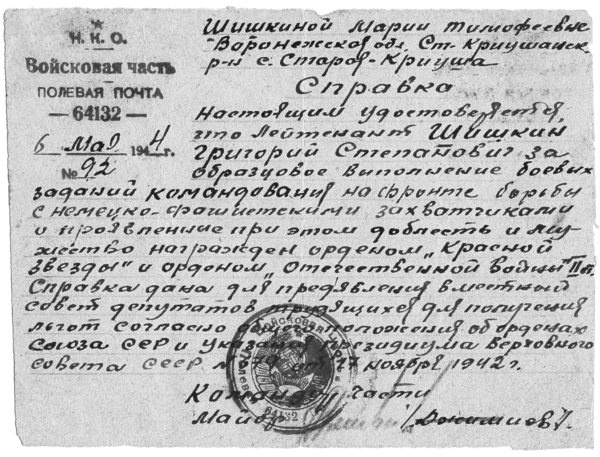 Н. К. О.
Войсковая часть
ПОЛЕВАЯ ПОЧТА
— 64132 —
6 мая 1944 г.
№ 92
Шишкиной Марии Тимофеевне
Воронежской обл. Ст-Криушанск.
р-н с. Старо-Криуша
Справка
Настоящим удостоверяется,
что Лейтенант Шишкин
Григорий Степанович за
образцовое выполнение боевых
заданий командования на фронте борьбы
с немецко-фашистскими захватчиками
и проявленные при этом доблесть и му-
жество награжден орденом „Красной
звезды" и орденом „Отечественной Войны" II ст.
Справка дана для предявления в местный
совет депутатов трудящихся для получения
льгот согласно положения об орденах
Союза ССР и указания президиума Верховного
совета СССР от 17 ноября 1942 г.
Командир части
Майор
64132